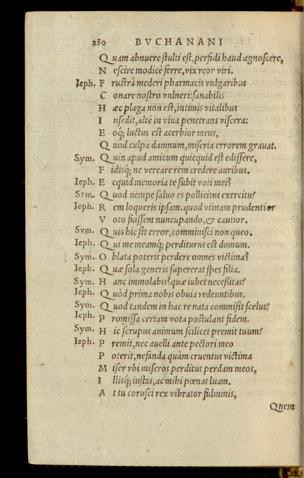 280 BVCHANANI
Quam abnuere stulti est, perfidi haud agnoscere,
Nescire modicè ferre, vix reor viri.
Ieph. Frustrà mederi pharmacis vulgaribus
Conare nostro vulneri: sanabilis
Hæc plaga non est, intimis vitalibus
Insedit, altè in viua penetrans viscera:
Eoq; luctus est acerbior meus,
Quod culpa damnum, miseria errorem grauat.
Sym. Quin apud amicum quicquid est edissere,
Fidisq; ne vercare rem credere auribus.
Ieph. Ecquid memoria te subit voti mei?
Sym. Quod nempe saluo es pollicitus exercitu?
Ieph. Rem loqueris ipsam. quod vtinam prudentior
Voto fuissem nuncupando, & cautior.
Sym. Quis hic sit error, comminisci non queo.
Ieph. Qui me meamq; perditurus est domum.
Sym. Oblata poterit perdere omnes victima?
Ieph. Quæ sola generis supererat spes filia.
Sym. Hanc immolabis? quæ iubet necessitas?
Ieph. Quòd prima nobis obuia redeuntibus.
Sym. Quod tandem in hac re nata commisit scelus?
Ieph. Promissa certam vota postulant fidem.
Sym. Hic scrupus animum scilicet premit tuum?
Ieph. Premit, nec auelli ante pectori meo
Poterit, nefanda quàm cruentus victima
Miser vbi miseros perditus perdam meos,
Illisq; iustas, ac mihi pœnas luam.
At tu corusci rex vibrator fulminis,
Quem